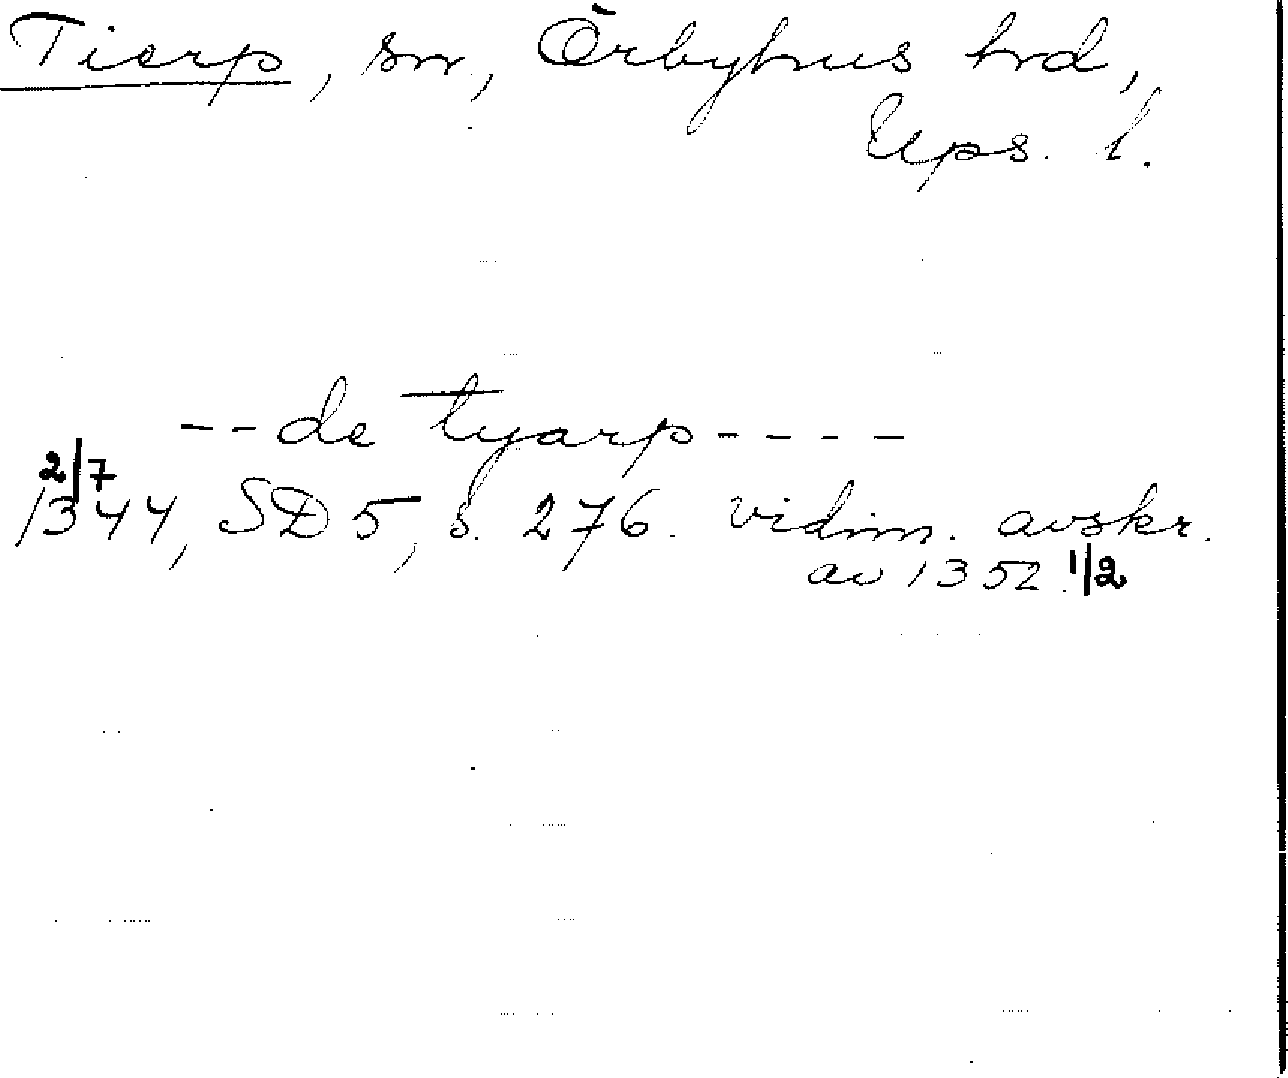 Tierp, sn, Örbyhus hrd,
Ups. l.
--de tyarp----
2/7
1344, SD 5, s. 276. vidim. avskr.
av 1352 1/2